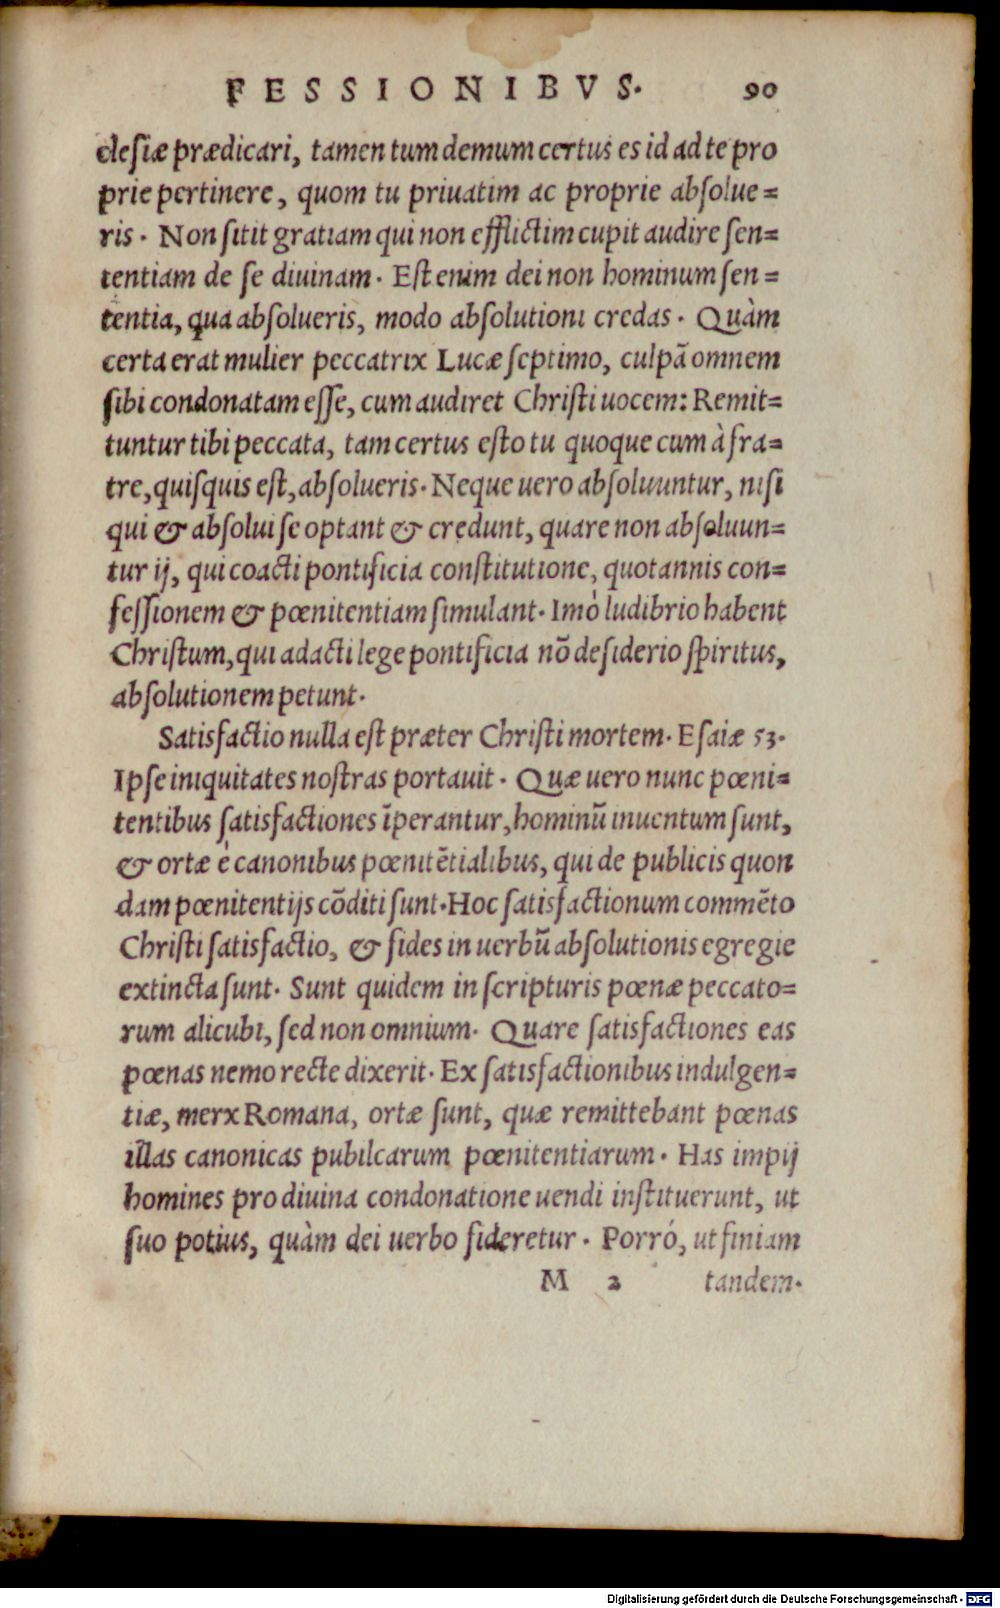 FESSIONIBVS. 90
clesiæ prædicari, tamen tum demum certus es id ad te pro
prie pertinere, quom tu priuatim ac proprie absolue=
ris. Non sitit gratiam qui non efflictim cupit audire sen=
tentiam de se diuinam. Est enim dei non hominum sen=
tentia, qua absolueris, modo absolutioni credas. Quàm
certa erat mulier peccatrix Lucæ septimo, culpã omnem
sibi condonatam esse, cum audiret Christi uocem: Remit=
tuntur tibi peccata, tam certus esto tu quoque cum à fra=
tre, quisquis est, absolueris. Neque uero absoluuntur, nisi
qui & absolui se optant & credunt, quare non absoluun=
tur ij, qui coacti pontificia constitutione, quotannis con=
fessionem & pœnitentiam simulant. Imò ludibrio habent
Christum, qui adacti lege pontificia nõ desiderio spiritus,
absolutionem petunt.
Satisfactio nulla est præter Christi mortem. Esaiæ 53.
Ipse iniquitates nostras portauit. Quæ uero nunc pœni=
tentibus satisfactiones ĩperantur, hominũ inuentum sunt,
& ortæ è canonibus pœnitẽtialibus, qui de publicis quon
dam pœnitentijs cõditi sunt. Hoc satisfactionum commẽto
Christi satisfactio, & fides in uerbũ absolutionis egregie
extincta sunt. Sunt quidem in scripturis pœnæ peccato=
rum alicubi, sed non omnium. Quare satisfactiones eas
pœnas nemo recte dixerit. Ex satisfactionibus indulgen=
tiæ, merx Romana, ortæ sunt, quæ remittebant pœnas
illas canonicas pubilcarum pœnitentiarum. Has impij
homines pro diuina condonatione uendi instituerunt, ut
suo potius, quàm dei uerbo fideretur. Porró, ut finiam
M 2 tandem.
Digitalisierung gefördert durch die Deutsche Forschungsgemeinschaft - DFG